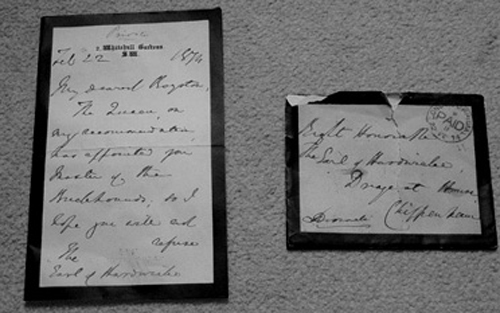 Private
2, Whitehall Gardens,
S.W.
Feb 22 1874
My dearest Royston,
The Queen, on
my recommendation,
has appointed you
Master of the
Buckhounds, so I
hope you will not
refuse
The
Earl of Hardwicke
PAID
Right Honorable
The Earl of Hardwicke
House,
Chippenham